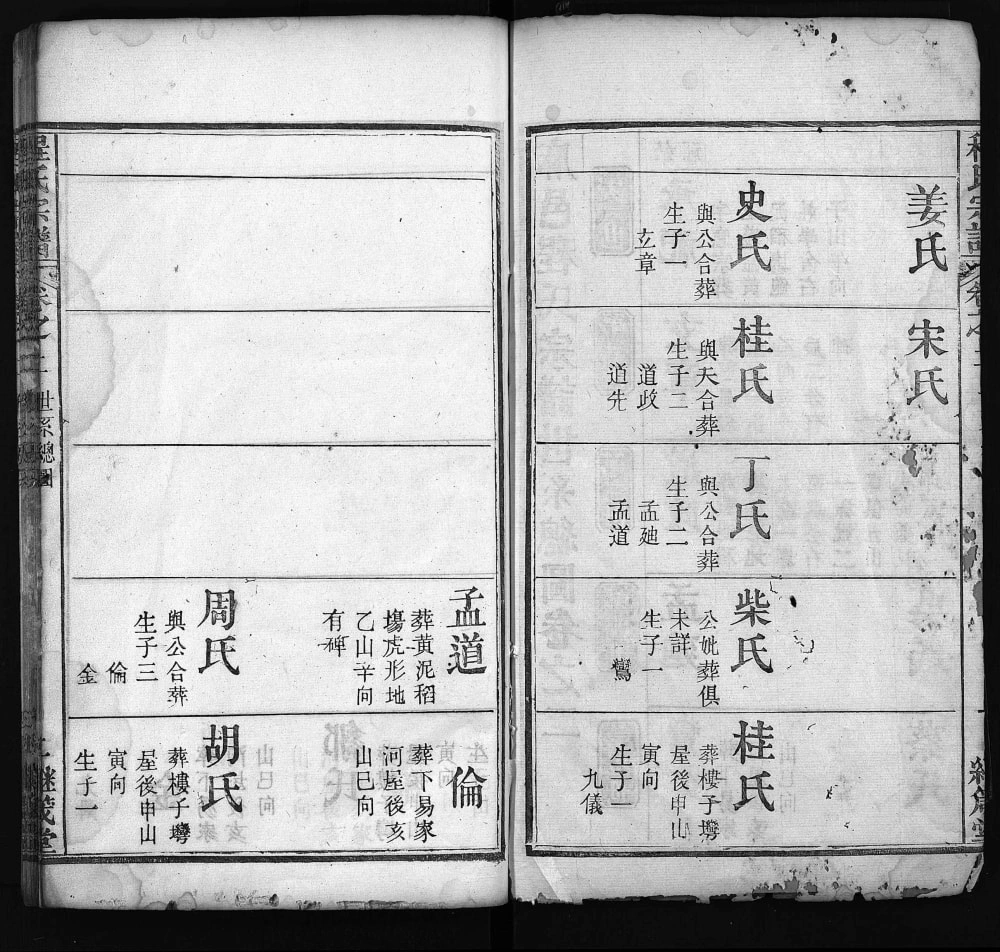 姜氏
史氏
與公合葬
生子一
玄章
宋氏
桂氏
與天合葬
生子二
道政
道先
丁氏
與公合葬
生子二
孟廸
孟道
柴氏
公妣葬俱
未詳
生子一
鸞
桂氏
葬樓子塆
屋後申山
寅向
生子一
九儀
孟道
葬黃泥稻
塲虎形地
乙山辛向
有碑
周氏
與公合葬
生子三
倫
金
倫
葬下易家
河屋後亥
山巳向
胡氏
葬樓子塆
屋後申山
寅向
生子一
氏宗譜
卷之二
世系總圖
繼茂堂